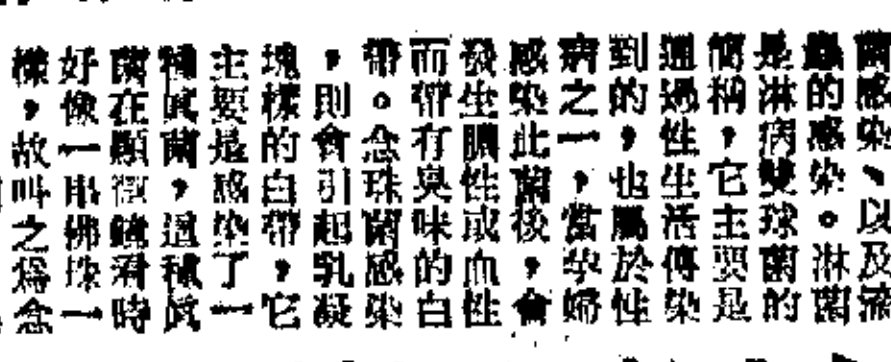 菌感染、以及滴
蟲的感染。淋菌
是淋病雙球菌的
簡稱，它主要是
通過性生活傳染
到的，也屬於性
病之一，當孕婦
感染此菌後，會
發生膿性或血性
而帶有臭味的白
帶。念珠菌感染
，則會引起乳凝
塊樣的白帶，它
主要是感染了一
種眞菌，這種眞
菌在顯微鏡看時
好像一串佛珠一
樣，故叫之爲念